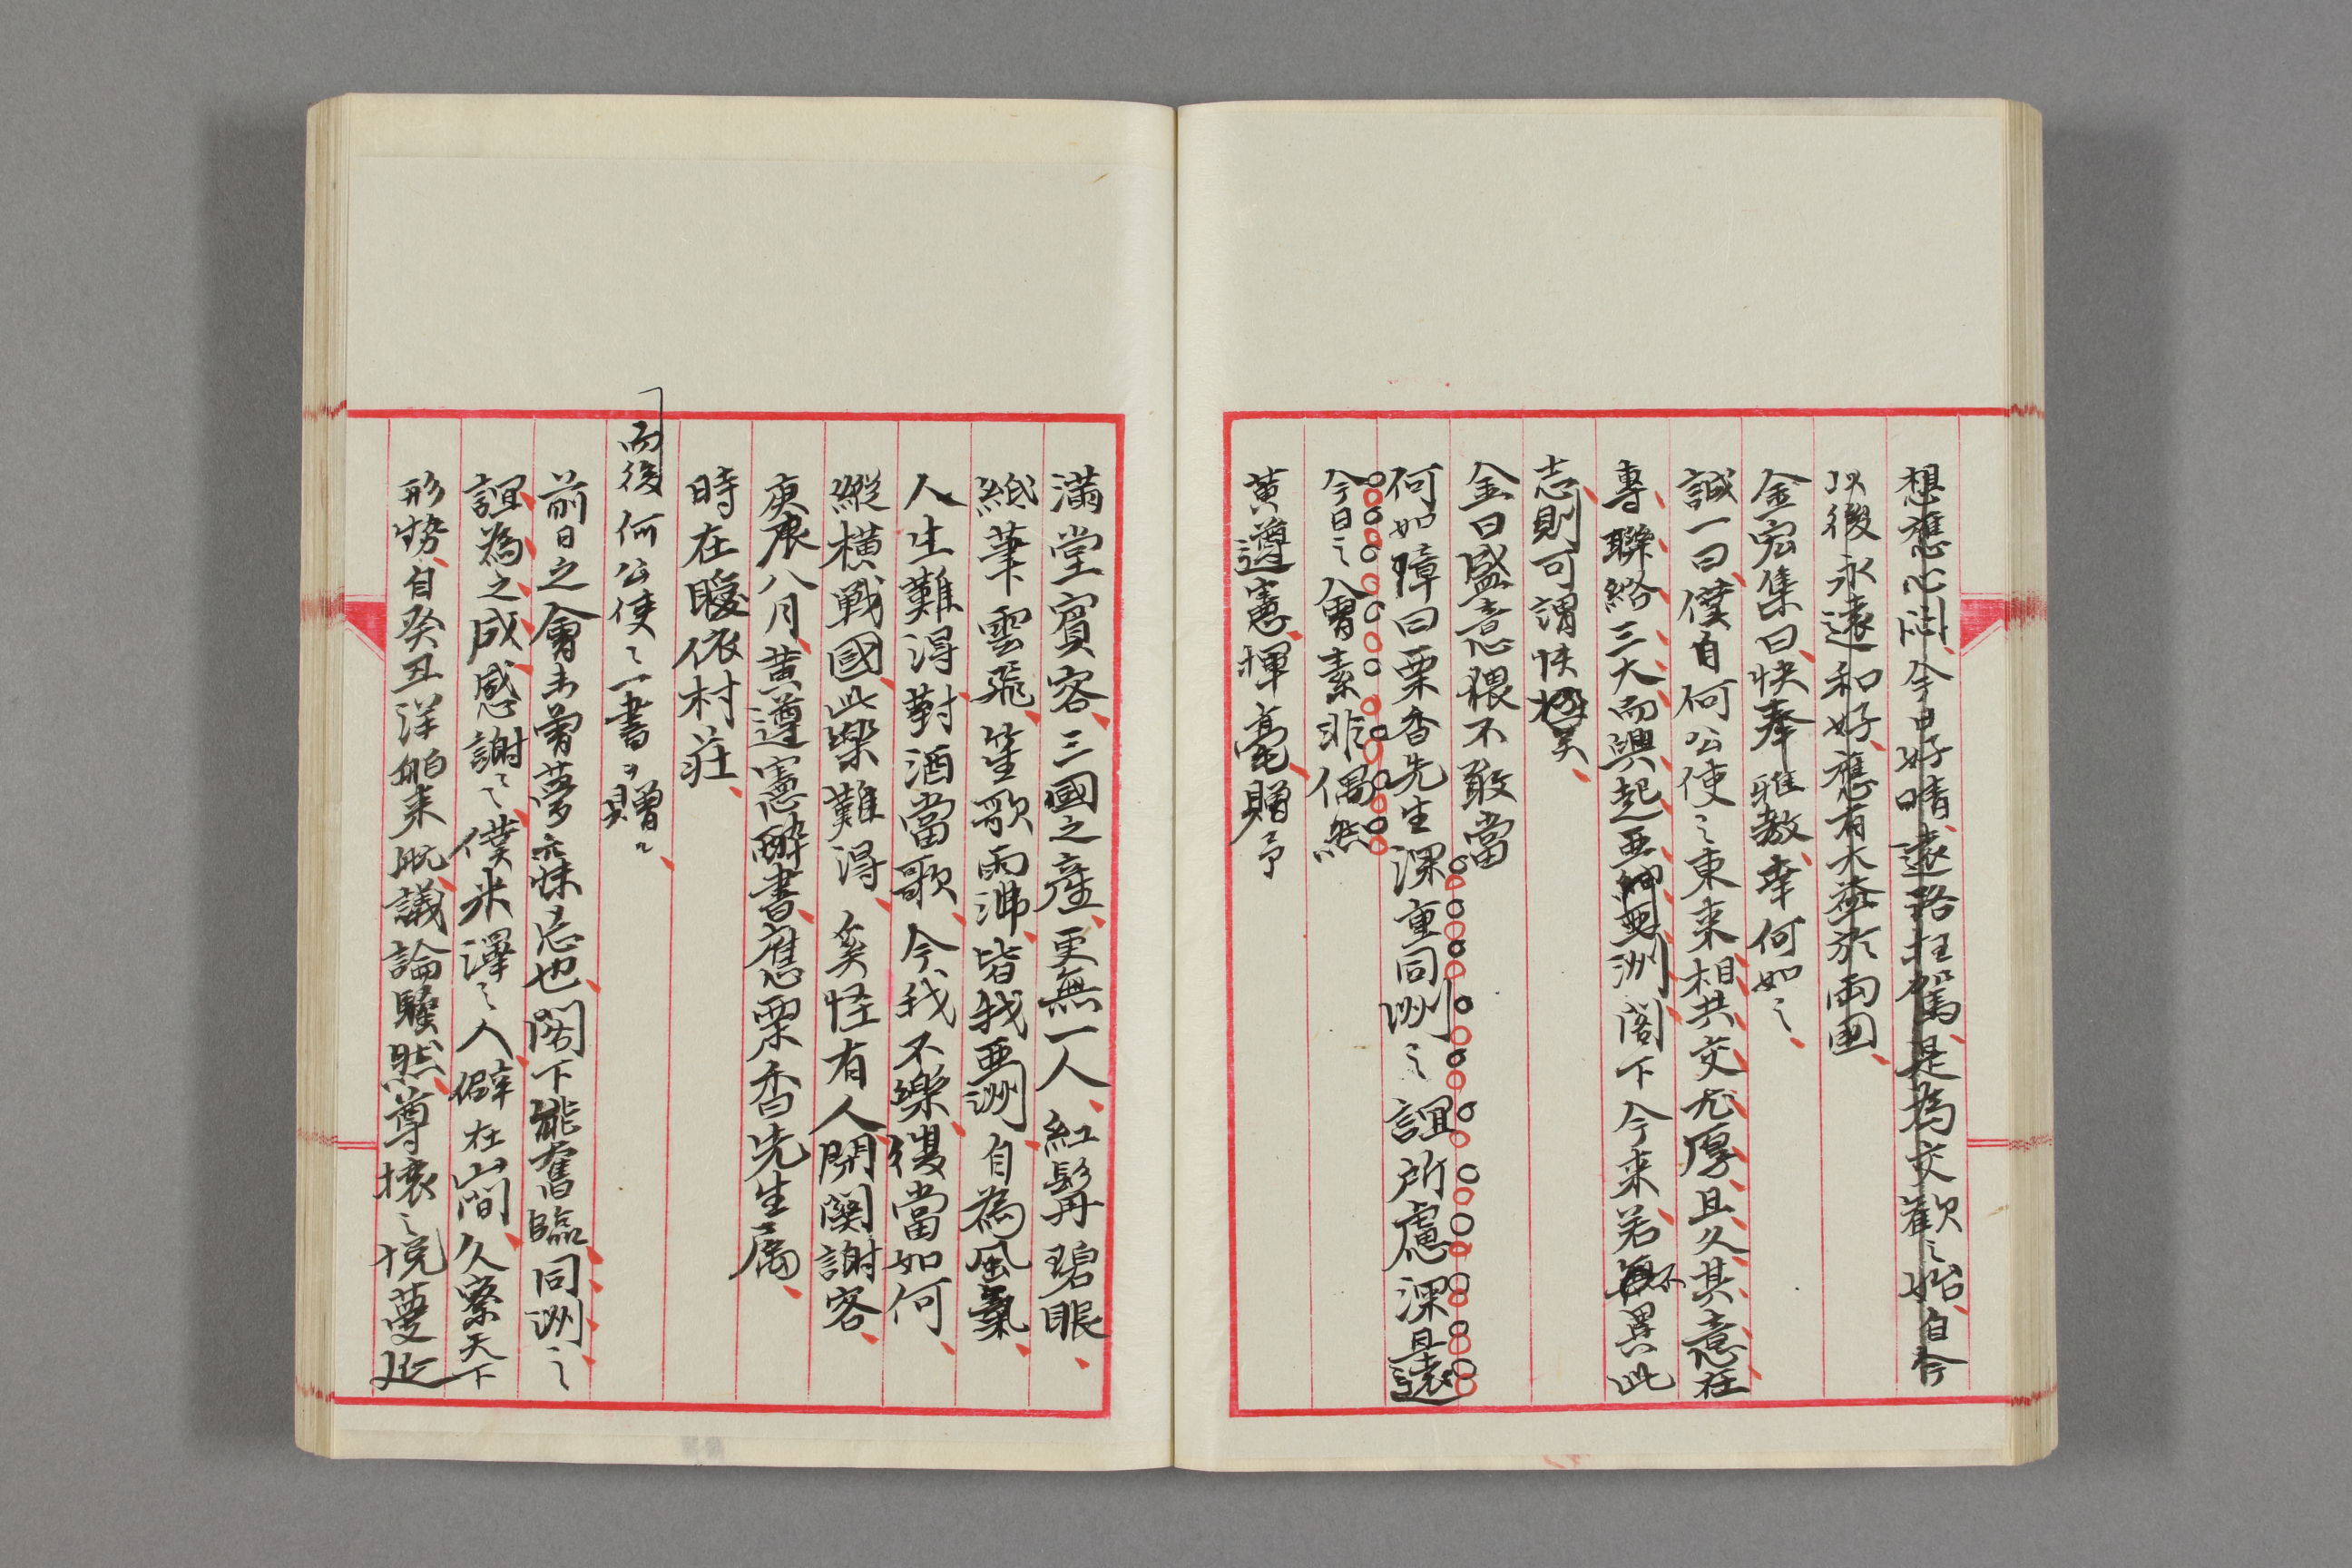 想應心悶、今日好晴、遠路枉駕、是為交歡之始、自今
以後永遠和好、應有大益於兩國、
金宏集曰、快奉雅教、幸何如之、
誠一曰、僕自何公使之東来、相共交尤厚、且久、其意在
專聯絡三大而興起亞細亞洲、閣下今来若不異此
志、則可謂快極矣、
金曰盛意猥不敢當
何如璋曰栗香先生深重同洲之誼所慮深且遠
今日之會素非偶然
黄遵憲、揮毫、贈予
滿堂賓客、三國之產、更無一人、紅髯碧眼、
紙筆雲飛、笙歌雨沸、皆我亜洲、自為風氣、
人生難得、對酒當歌、今我不樂、復當如何、
縱橫戰國、此樂難得、奚怪有人、閉關謝客、
庚辰八月、黄遵憲醉書、應栗香先生属、
時在曖依村莊、
而後何公使之一書ヲ贈ル、
前日之會未嘗夢寐忘也、閣下能奮臨、同洲之
誼為之成、感謝々々、僕米澤之人、僻在山間、久察天下
形勢、自癸丑洋舶来航、議論騒然、尊攘之悦蔓延